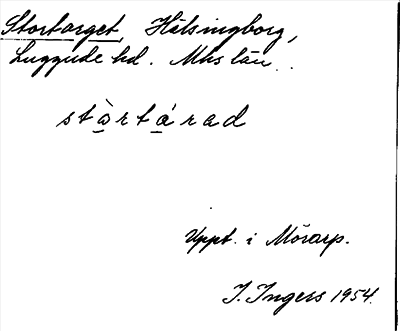 Stortorget, Hälsingborg,
Luggude hd. Mhs län.
stòrtárad
Uppt. i Mörarp.
I. Ingers 1954.